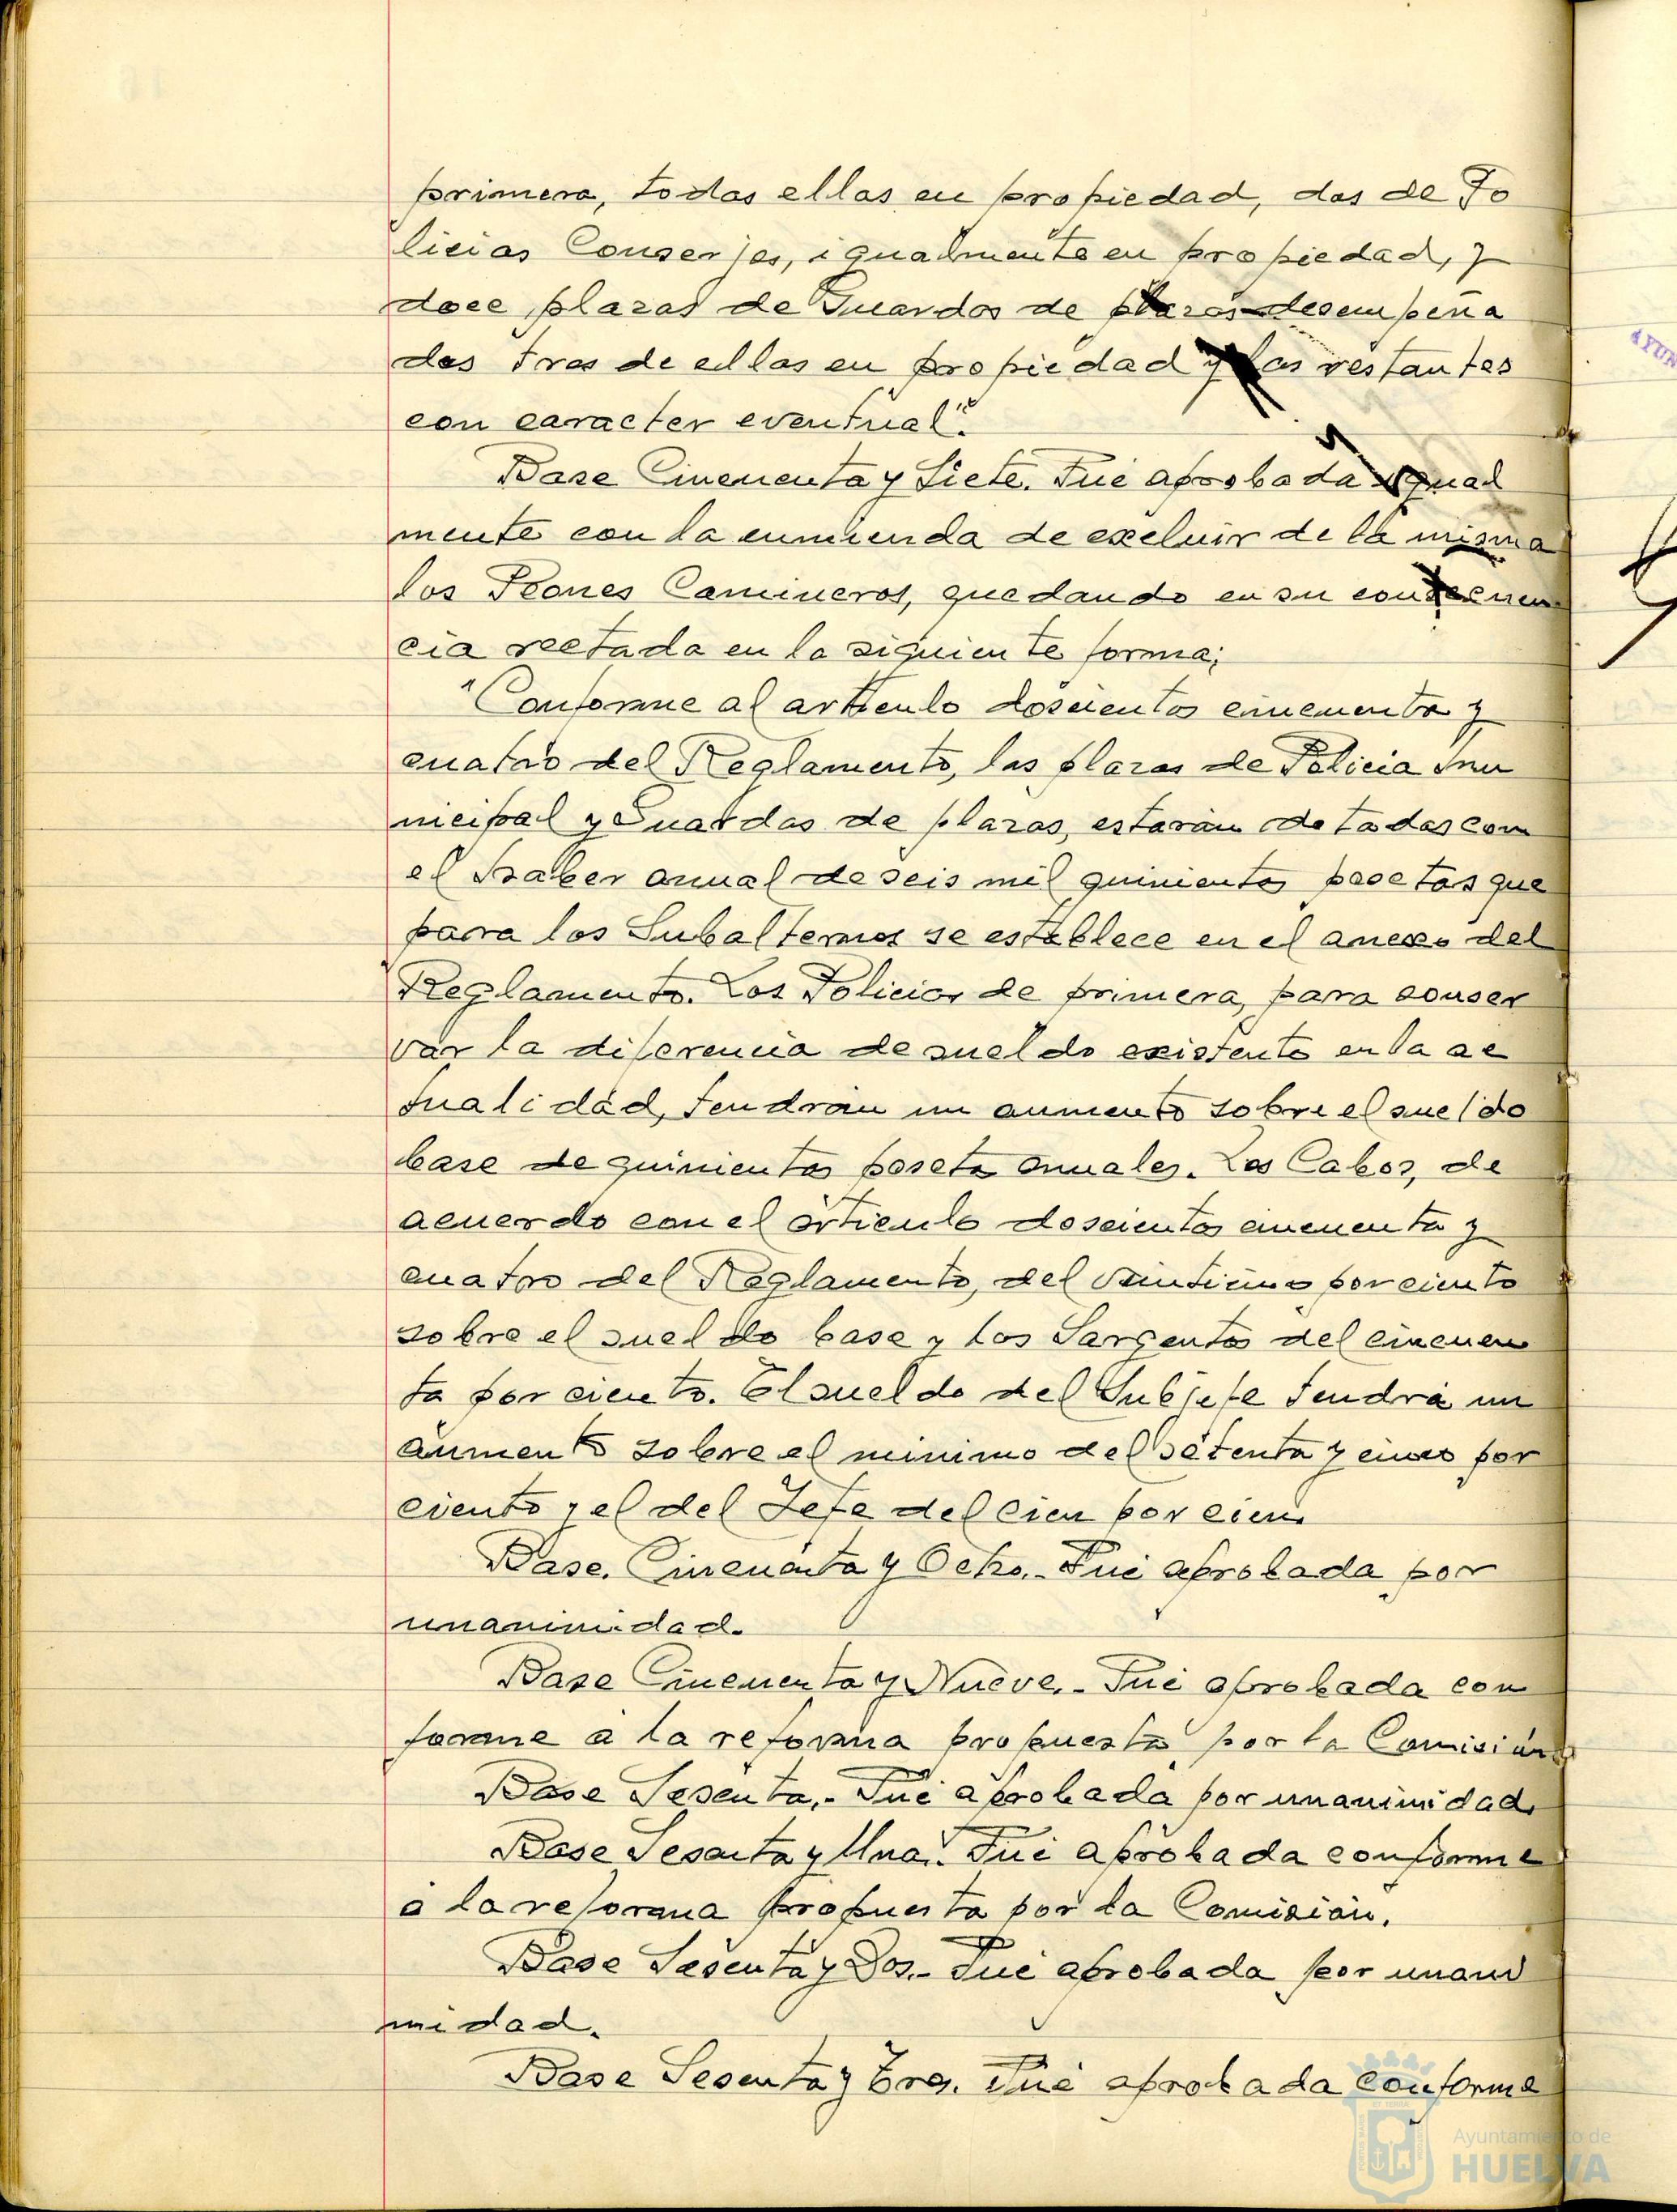 primera, todas ellas en propiedad, dos de Po
licias Conserjes, igualmente en propiedad, y
doce plazas de Guardas de plazas desempeña
das tres de ellas en propiedad y las restantes
con caracter eventual".
Base Cincuenta y Siete. Fué aprobada igual
mente con la enmienda de excluir de la misma
los Peones Camineros, quedando en su consecuen
cia rectada en la siguiente forma;
"Conforme al artículo doscientos cincuenta y
cuatro del Reglamento, las plazas de Policia Mu
nicipal y Guardas de plazas, estarán dotadas con
el haber anual de seis mil quinientas pesetas que
para los Subalternos se establece en el anexo del
Reglamento. Los Policias de primera, para conser
var la diferencia de sueldo existente en la ac
tualidad, tendrán un aumento sobre el sueldo
base de quinientas peseta anuales. Los Cabos, de
acuerdo con el artículo doscientos cincuenta y
cuatro del Reglamento, del veinticinco por ciento
sobre el sueldo base y los Sargentos del cincuen
ta por ciento. El sueldo del Subjefe tendrá un
aumento sobre el minimo del setenta y cinco por
ciento y el del Jefe del cien por cien.
Base. Cincuenta y Ocho.- Fué aprobada por
unanimidad.
Base Cincuenta y Nueve.- Fué aprobada con
forme a la reforma propuesta por la Comisión.
Base Sesenta.- Fué aprobada por unanimidad.
Base Sesenta y Una.- Fué aprobada conforme
a la reforma propuesta por la Comisión.
Base Sesenta y Dos.- Fué aprobada por unani
midad.
Base Sesenta y Tres. Fué aprobada conforme
Ayuntamiento de
HUELVA
AYUN